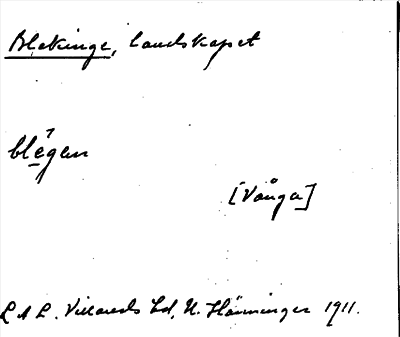 Blekinge, landskapet
blegen
[Vånga]
L A L. Villands hd, N. Hänninger 1911.